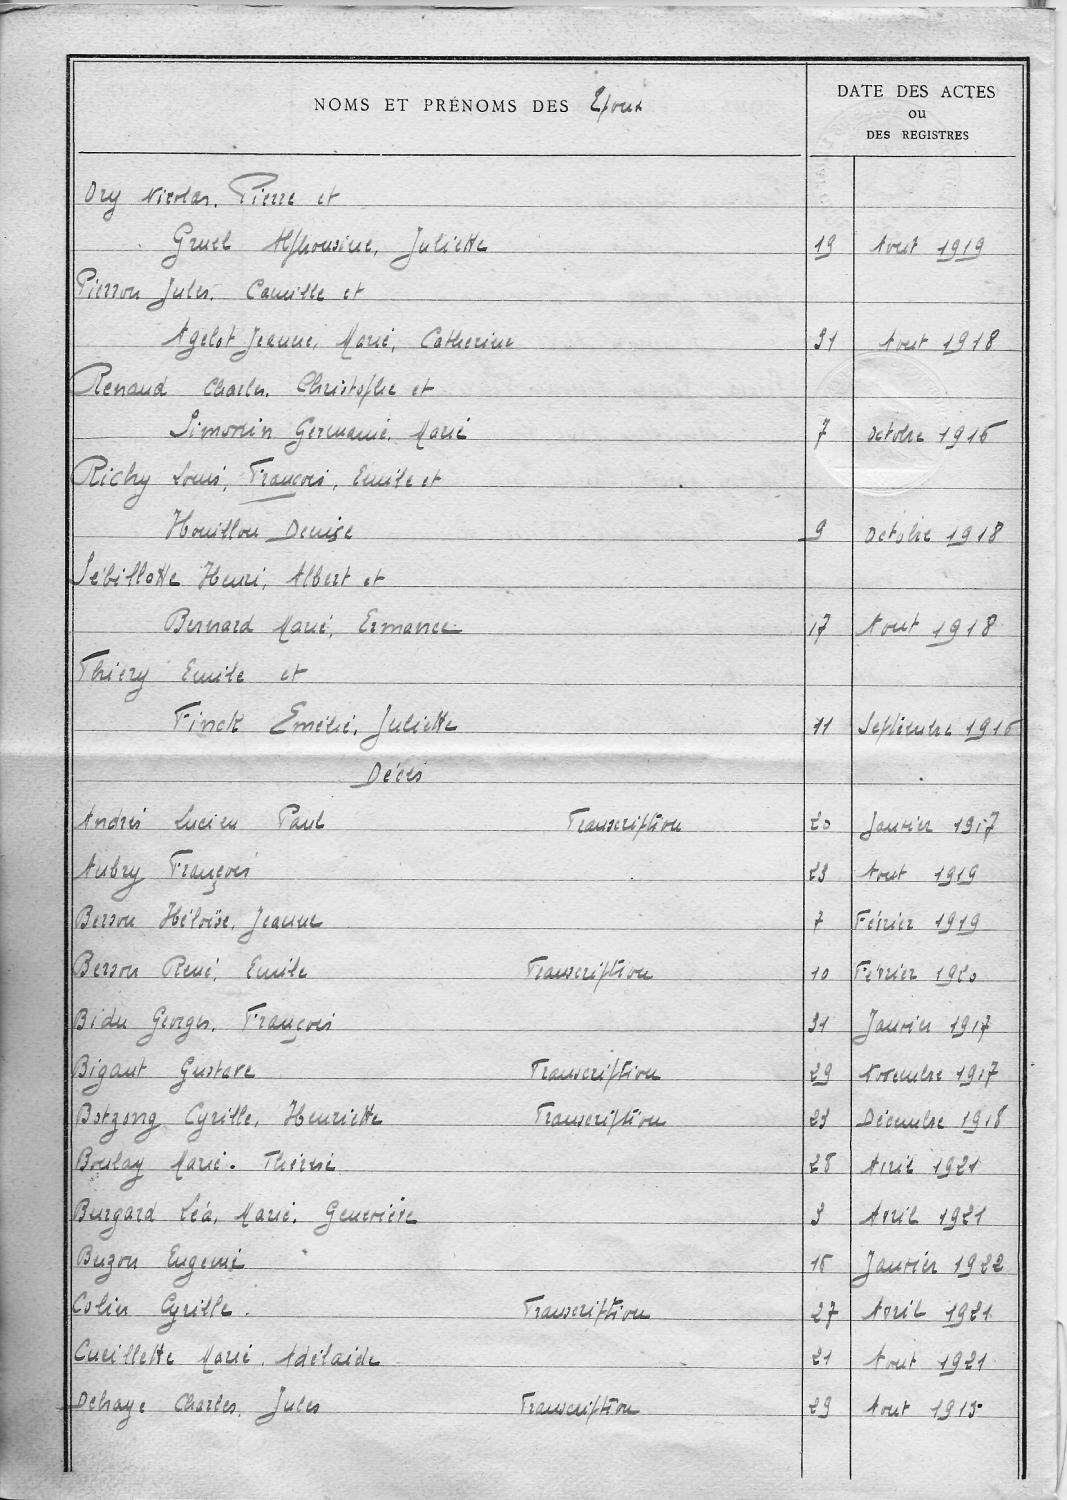 NOMS ET PRÉNOMS DES Epoux
DATE DES ACTES
OU
DES REGISTRES
Ory Nicolas, Pierre et
Gruel Alphonsine, Juliette 19 Aout 1919
Pierron Jules, Camille et
Agelot Jeanne, Marie, Catherine 31 Aout 1918
Renaud Charles, Christophe et
Simonin Germaine, Marie 7 Octobre 1916
Richy Louis, François, Emile et
Houillon Denise 9 Octobre 1918
Sébillotte Henri, Albert et
Bernard Marie, Ermance 17 Aout 1918
Thiery Emile et
Finck Emélie, Juliette 11 Septembre 1916
Décès
André Lucien Paul Transcription 20 Janvier 1917
Aubry François 23 Aout 1919
Berson Héloïse, Jeanne 7 Février 1919
Berson René, Emile Transcription 10 Février 1920
Bidu Georges, François 31 Janvier 1917
Bigaut Gustave Transcription 29 Novembre 1917
Botzong Cyrille, Henriette Transcription 23 Décembre 1918
Boulay Marie. Thérèse 28 Avril 1921
Burgard Léa, Marie, Geneviève 3 Avril 1921
Buzon Eugénie 16 Janvier 1922
Colin Cyrille. Transcription 27 Avril 1921
Cueillette Marie, Adélaïde 21 Aout 1921
Delhaye Charles, Jules Transcription 29 Aout 1915